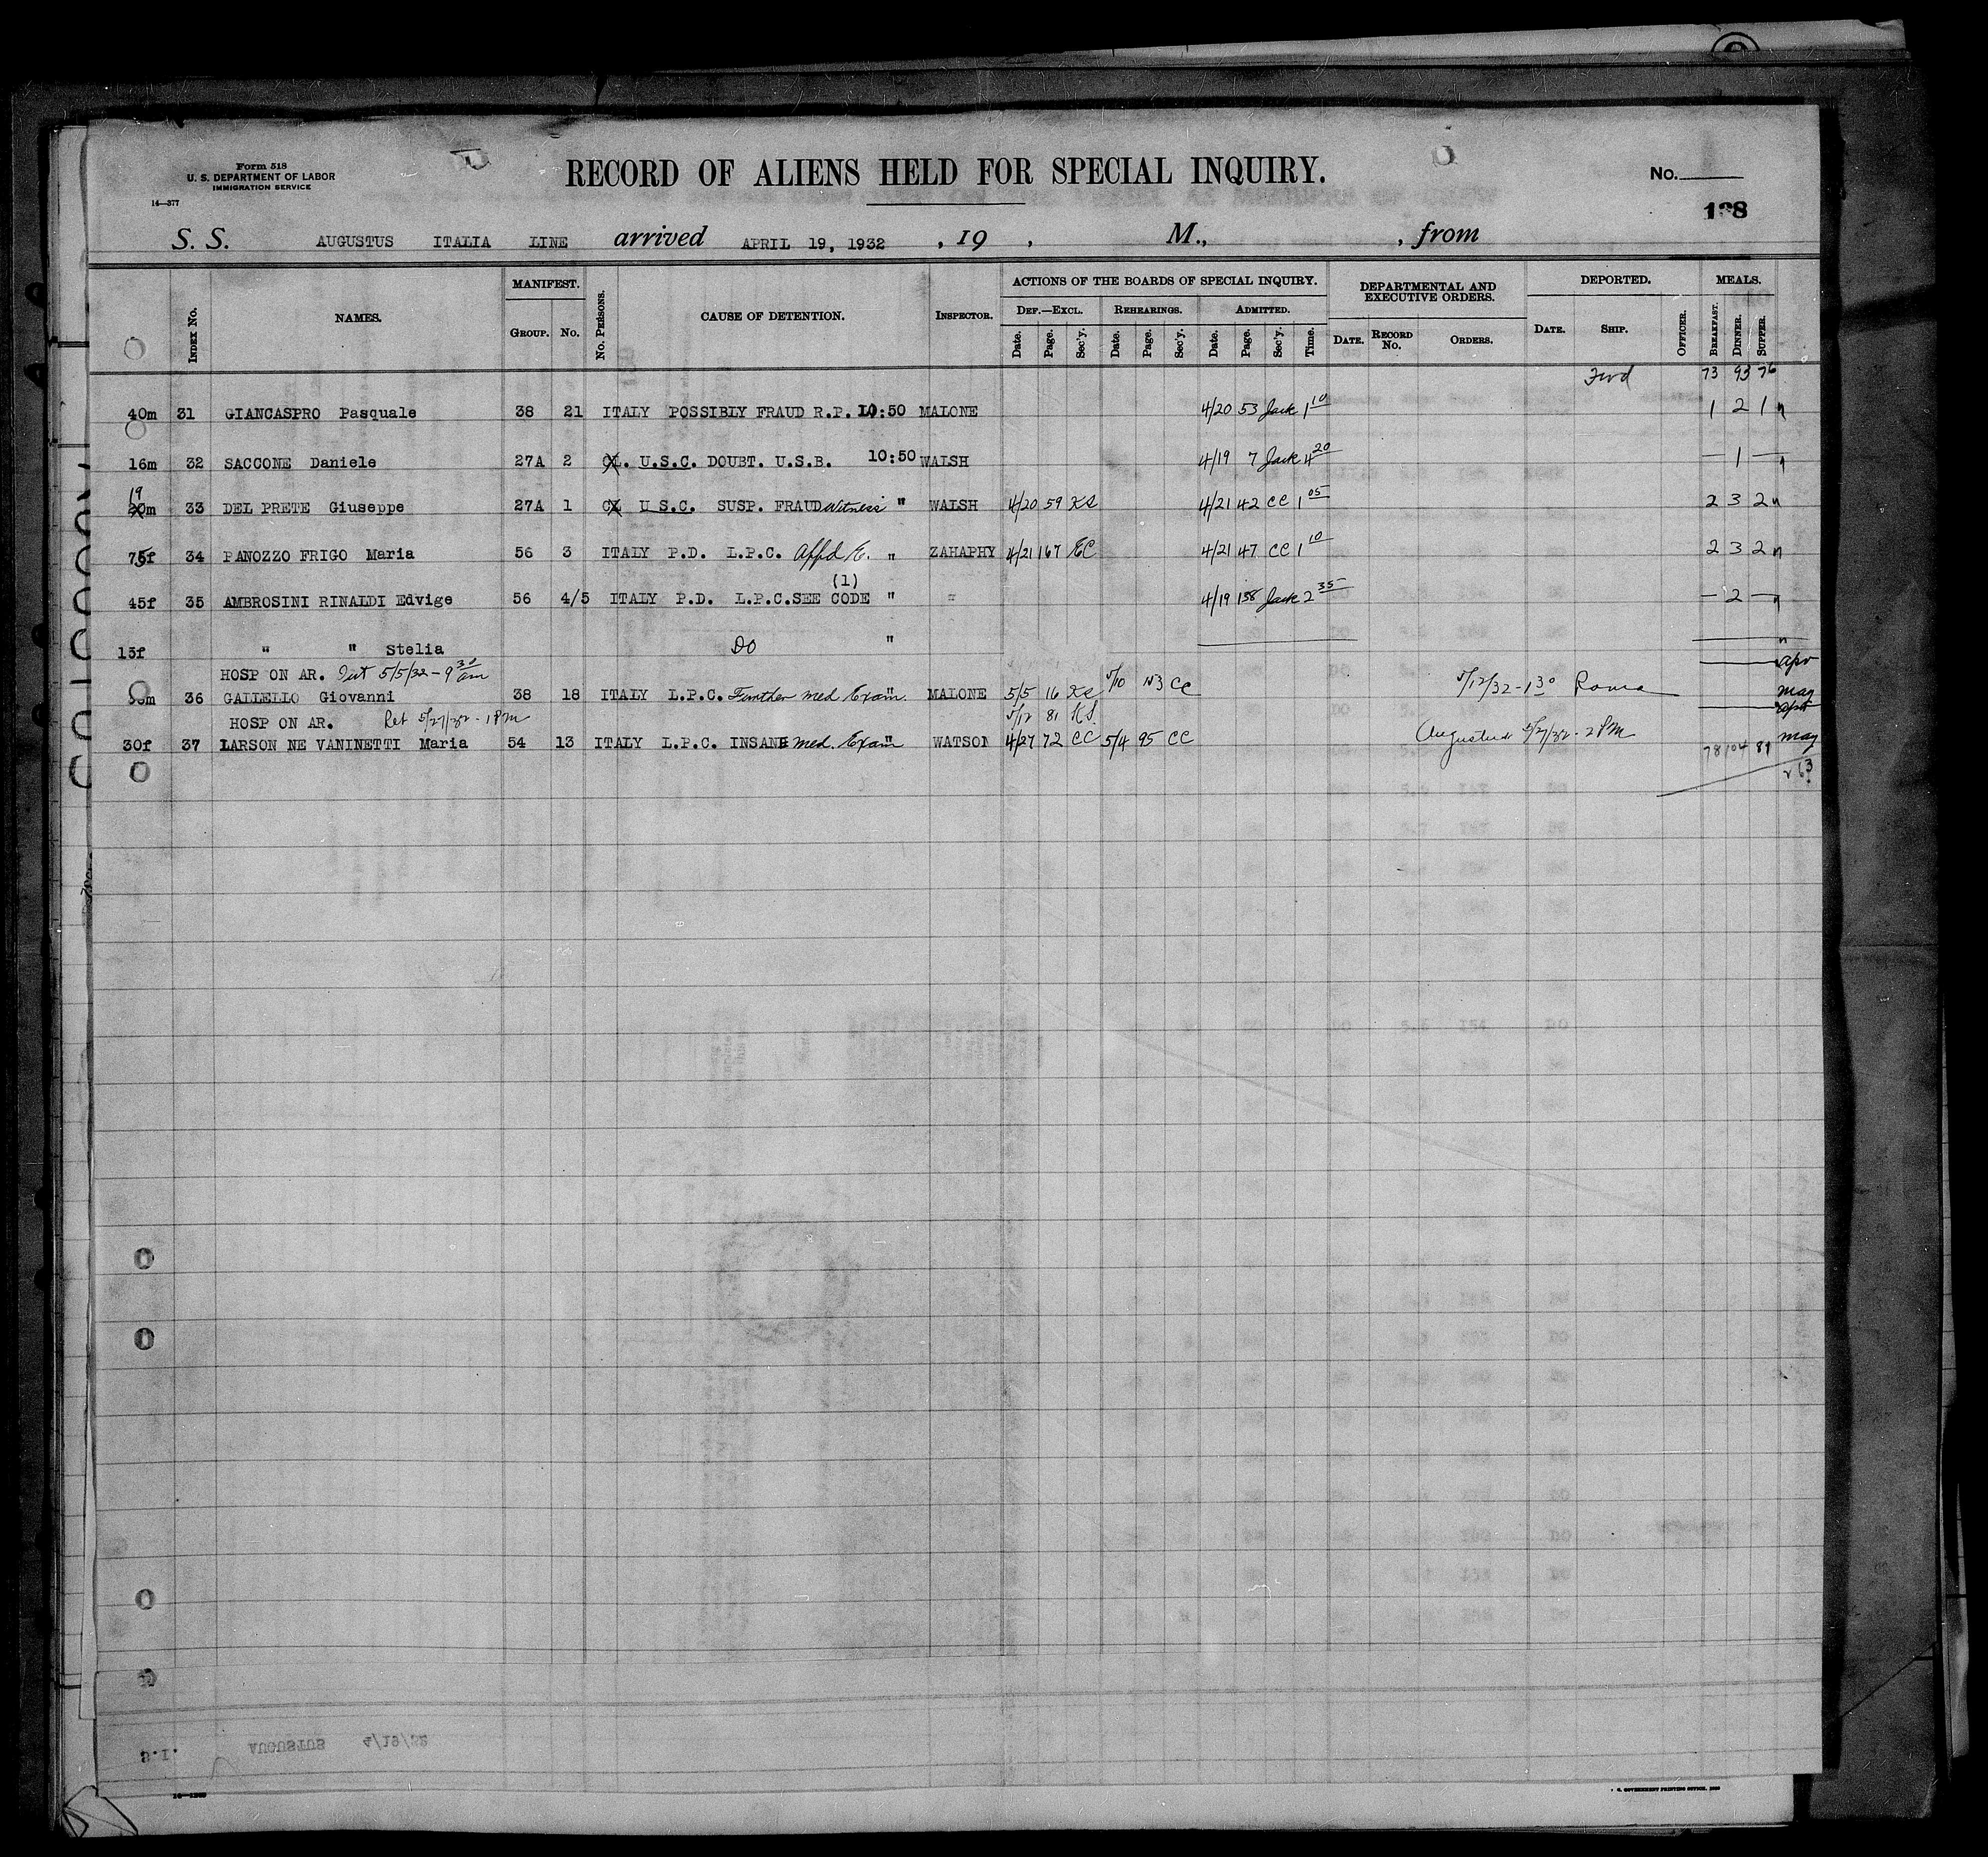 Form 518
U. S. DEPARTMENT OF LABOR
IMMIGRATION SERVICE
14—377
RECORD OF ALIENS HELD FOR SPECIAL INQUIRY.
No.
198
S. S. AUGUSTUS ITALIA LINE arrived APRIL 19, 1932 , 19 , M., , from
MANIFEST. ACTIONS OF THE BOARDS OF SPECIAL INQUIRY. DEPARTMENTAL AND EXECUTIVE ORDERS. DEPORTED. MEALS.
INDEX No. NAMES. GROUP. No. No. PERSONS. CAUSE OF DETENTION. INSPECTOR. DEF.—EXCL. REHEARINGS. ADMITTED.
Date. Page. Sec'y. Date. Page. Sec'y. Date. Page. Sec'y. Time. DATE. RECORD No. ORDERS. DATE. SHIP. OFFICER. BREAKFAST. DINNER. SUPPER.
Fwd 73 93 76
40m 31 GIANCASPRO Pasquale 38 21 ITALY POSSIBLY FRAUD R.P. 10:50 MALONE 4/20 53 Jack 1 10 1 2 1 "
16m 32 SACCONE Daniele 27A 2 CL. U.S.C. DOUBT. U.S.B. 10:50 WALSH 4/19 7 Jack 4 20 — 1 — "
19
20m 33 DEL PRETE Giuseppe 27A 1 CL U S.C. SUSP. FRAUD Witness " WALSH 4/20 59 KS 4/21 42 CC 1 05 2 3 2 "
75f 34 PANOZZO FRIGO Maria 56 3 ITALY P.D. L.P.C. Affd " ZAHAPHY 4/21 167 4/21 47 CC 1 10 2 3 2 "
(1)
45f 35 AMBROSINI RINALDI Edvige 56 4/5 ITALY P.D. L.P.C. SEE CODE " " 4/19 158 Jack 2 35 — 2 — "
15f " " Stelia DO " "
HOSP ON AR. 5/5/32 - 9 30 am apr
36 GALLELLO Giovanni 38 18 ITALY L.P.C. Further med Exam. " MALONE 5/5 16 KS 5/10 CC 5/12/32 - 1 30 Roma may
HOSP ON AR. Ret 5/27/32 - 1 PM 5/12 81 KS. apr
30f 37 LARSON NE VANINETTI Maria 54 13 ITALY L.P.C. INSANE med. Exam " WATSON 4/27 72 CC 5/4 95 CC Augustus 5/27/32 - 2 PM 78 104 81 may
263
S.I. AUGUSTUS 4/19/32
GOVERNMENT PRINTING OFFICE